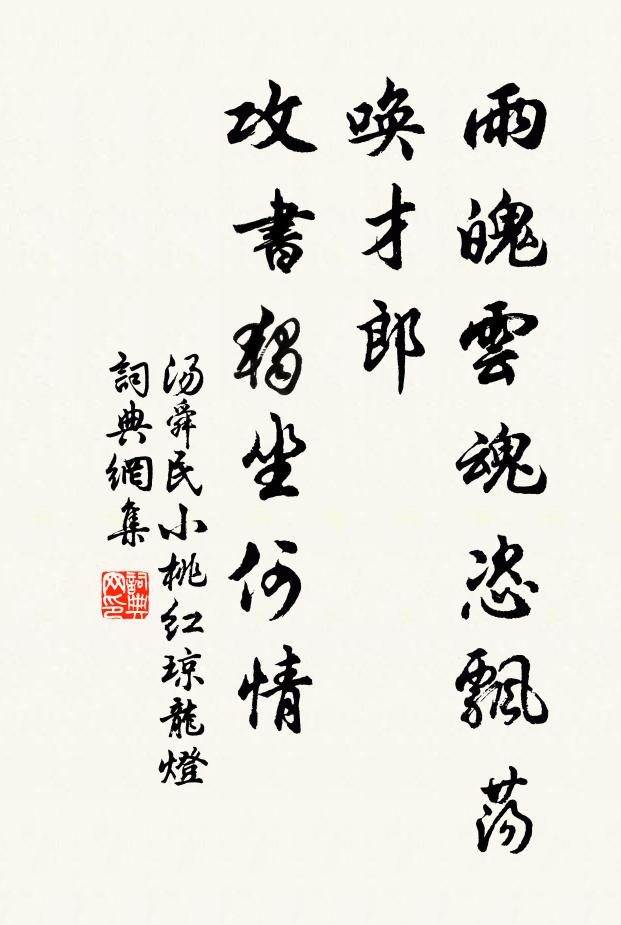 雨魄雲魂恣飄荡
唤才郎
攻書獨坐何情
汤舜民小桃红琼龍燈
詞典網集
詞典网印